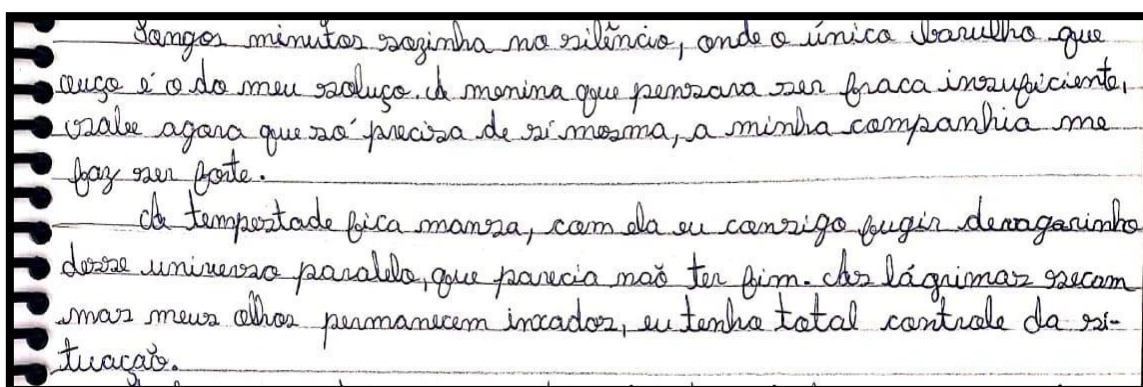 Longos minutos sozinha no silêncio, onde o único barulho que
ouço é o do meu soluço. A menina que pensara ser fraca insuficiente,
sabe agora que só precisa de si mesma, a minha companhia me
faz ser forte.
A tempestade fica mansa, com ela eu consigo fugir devagarinho
desse universo paralelo, que parecia não ter fim. As lágrimas secam
mas meus olhos permanecem inxados, eu tenho total controle da si-
tuação.